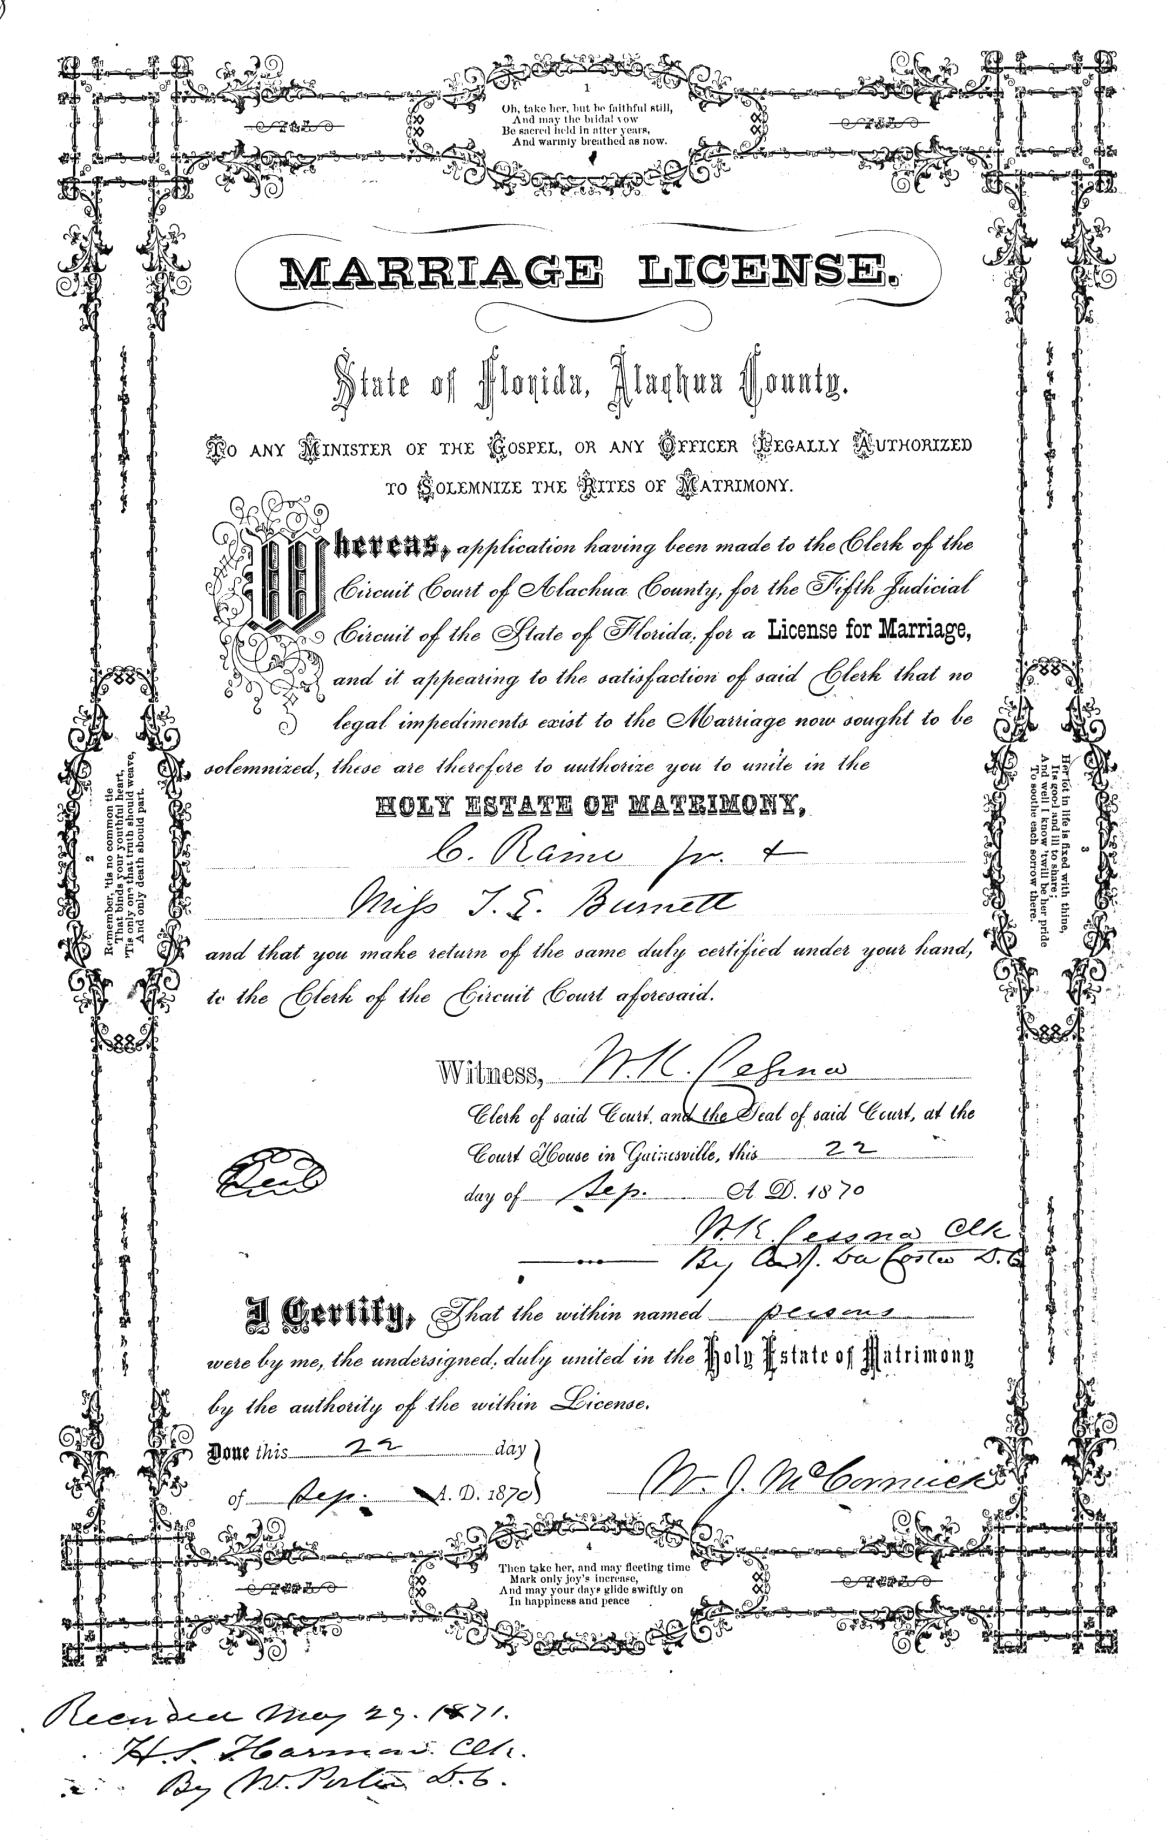 1
Oh, take her, but be faithful still,
And may the bridal vow
Be sacred held in after years,
And warmly breathed as now.
MARRIAGE LICENSE.
State of Florida, Alachua County.
TO ANY MINISTER OF THE GOSPEL, OR ANY OFFICER LEGALLY AUTHORIZED
TO SOLEMNIZE THE RITES OF MATRIMONY.
Whereas, application having been made to the Clerk of the
Circuit Court of Alachua County, for the Fifth Judicial
Circuit of the State of Florida, for a License for Marriage,
and it appearing to the satisfaction of said Clerk that no
legal impediments exist to the Marriage now sought to be
solemnized, these are therefore to authorize you to unite in the
HOLY ESTATE OF MATRIMONY,
C. Raine jr. &
Miss T. E. Burnett
and that you make return of the same duly certified under your hand,
to the Clerk of the Circuit Court aforesaid.
2
Remember, 'tis no common tie
That binds your youthful heart,
'Tis only one that truth should weave,
And only death should part.
3
Her lot in life is fixed with thine,
Its good and ill to share;
And well I know 'twill be her pride
To soothe each sorrow there.
Witness, W. K. Cessna
Clerk of said Court, and the Seal of said Court, at the
Court House in Gainesville, this 22
Seal
day of Sep. A. D. 1870
W. K. Cessna Clk
By J. Da Costa D. C
I Certify, That the within named persons
were by me, the undersigned, duly united in the Holy Estate of Matrimony
by the authority of the within License.
Done this 22 day
of Sep. A. D. 1870
W. J. McCormick
4
Then take her, and may fleeting time
Mark only joy's increase,
And may your days glide swiftly on
In happiness and peace
Recorded May 29. 1871.
H. S. Harmon. Clk.
By W. Porter D. C.